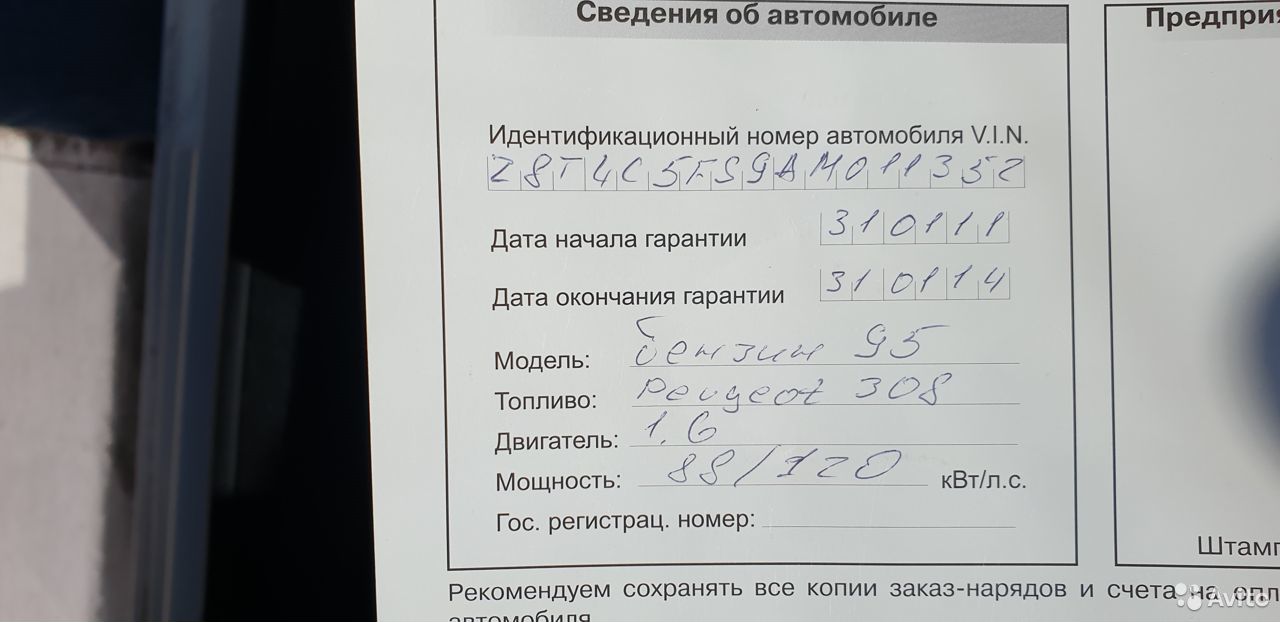 Сведения об автомобиле
Предприя
Идентификационный номер автомобиля V.I.N.
Z8T4C5FS9AM011352
Дата начала гарантии 310111
Дата окончания гарантии 310114
Модель: бензин 95
Топливо: Peugeot 308
Двигатель: 1.6
Мощность: 88/120 кВт/л.с.
Гос. регистрац. номер:
Штамп
Рекомендуем сохранять все копии заказ-нарядов и счета на опл
автомобиля
Avito